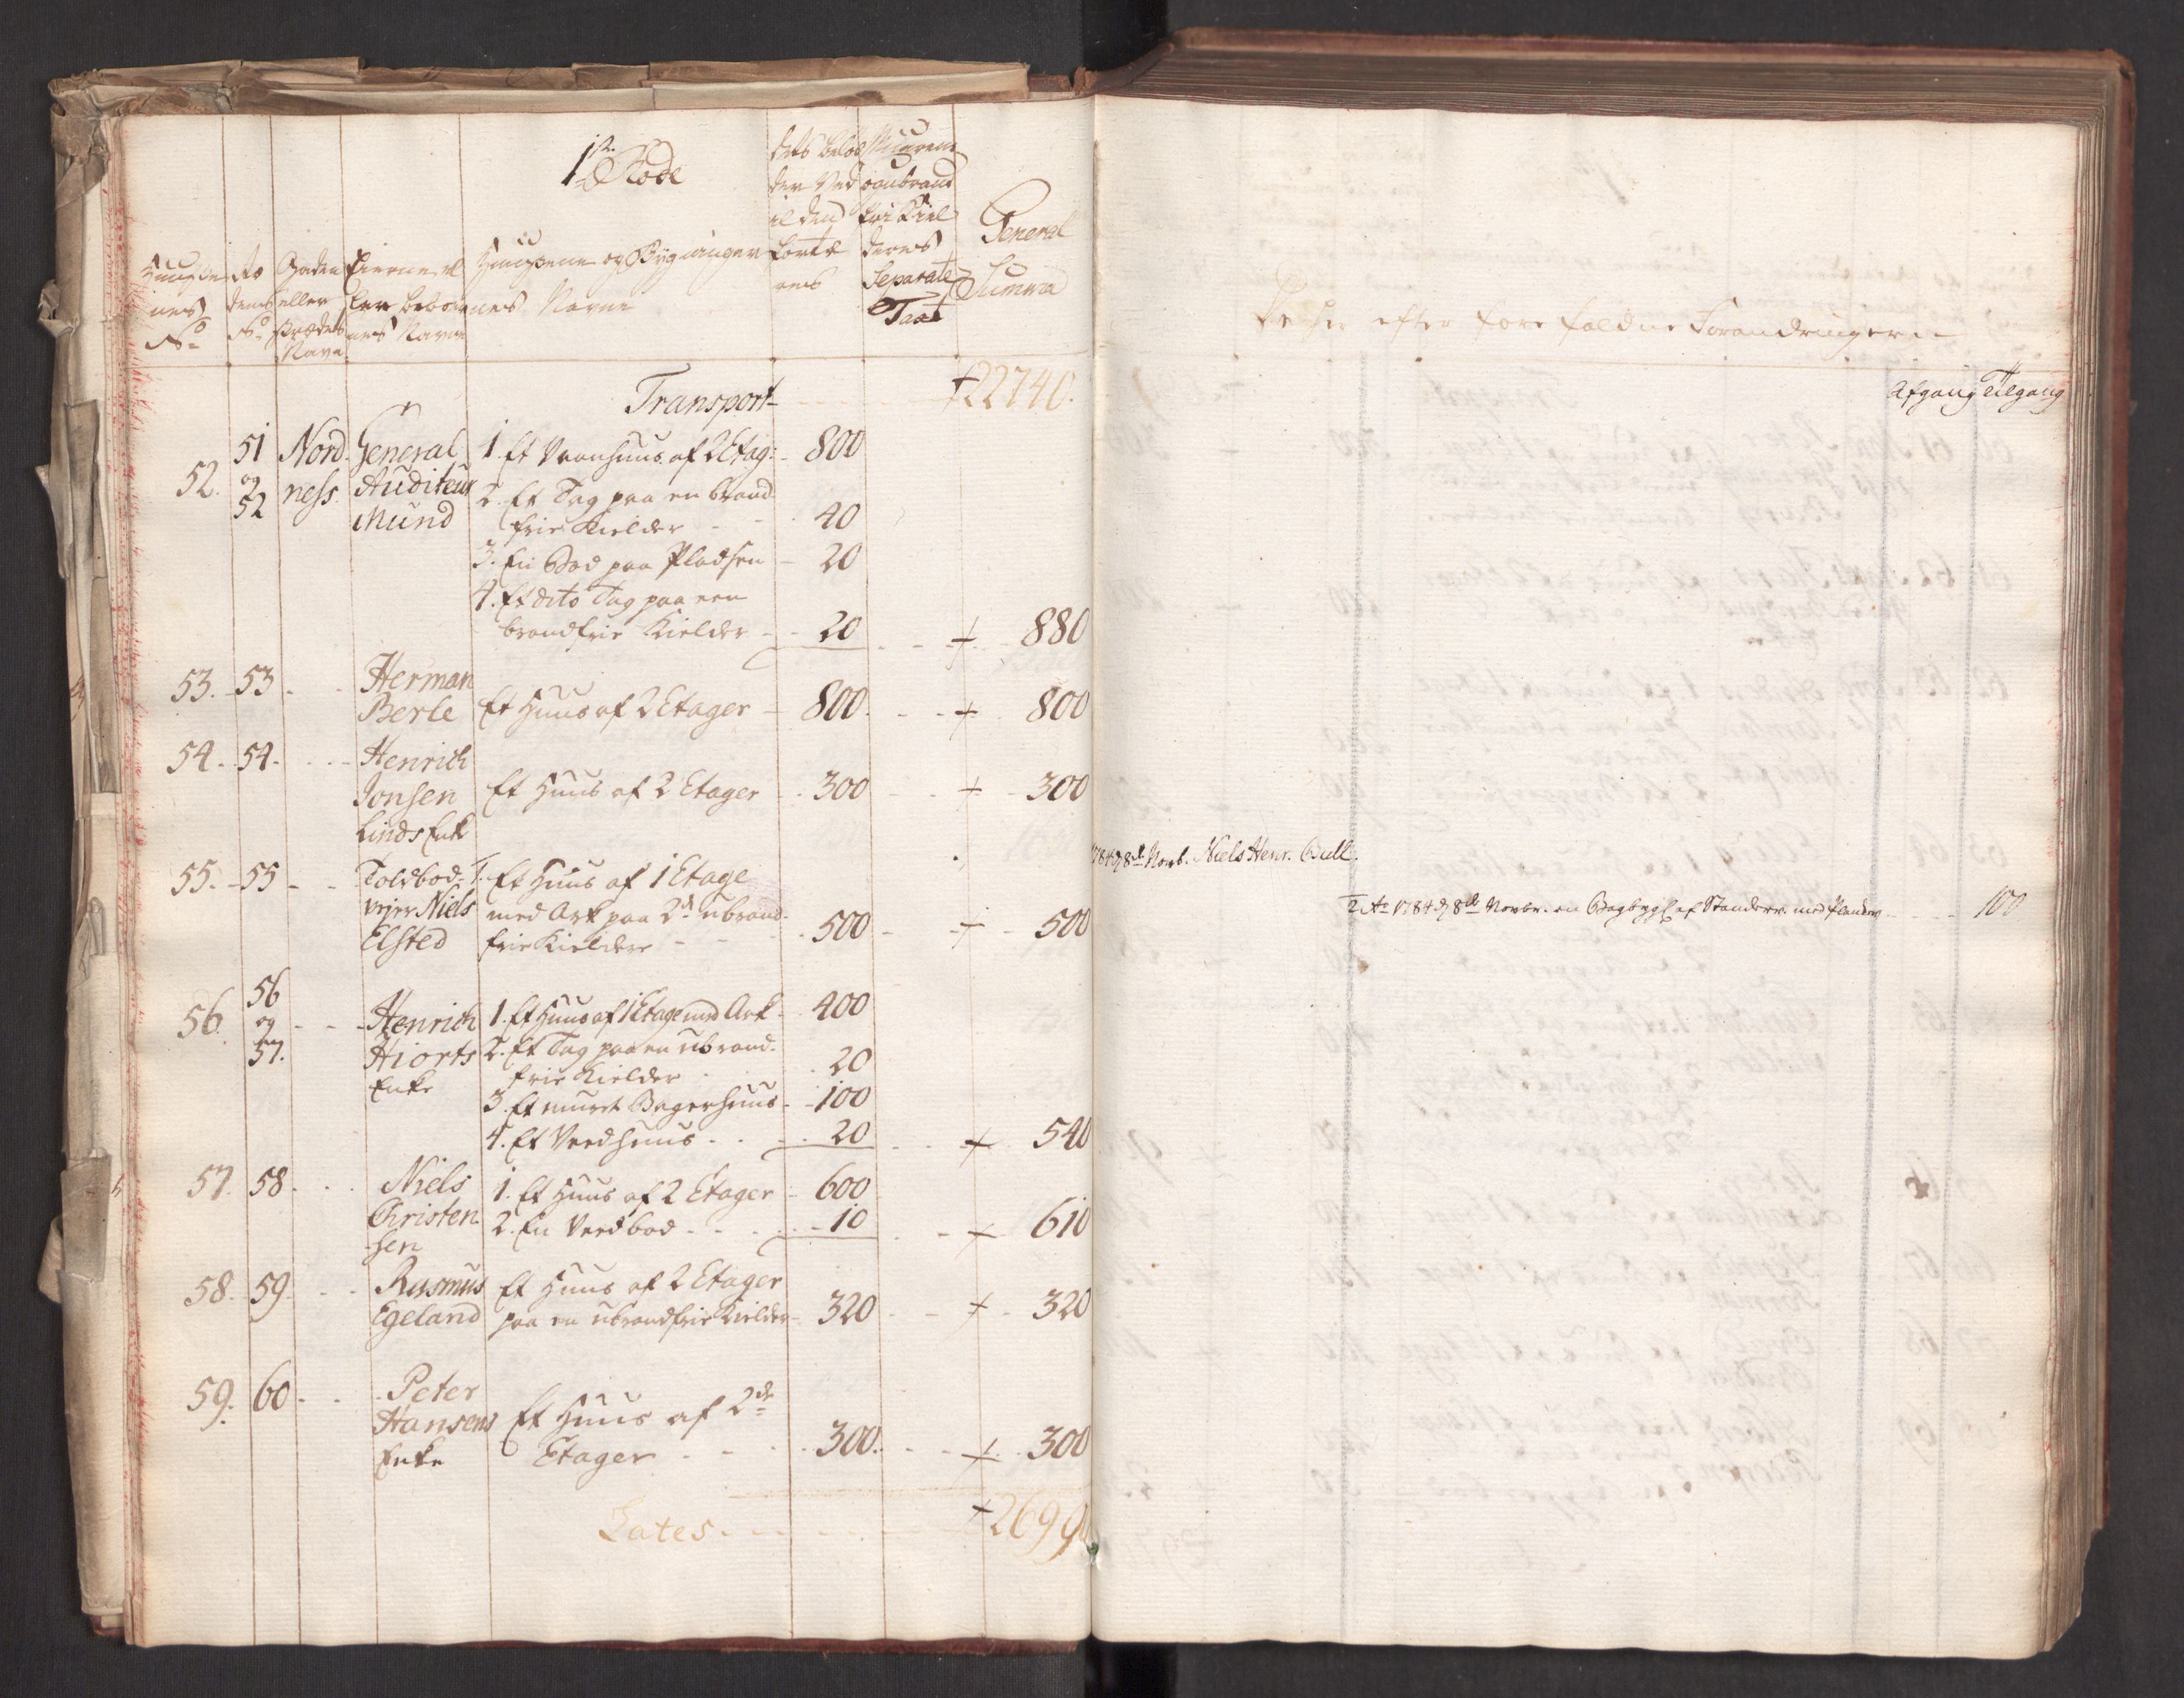 1ste Rode
Huuse
nes
No
Ro
dens
No
Gaden
eller
Strædets
Navn
Eierne el
ler beboer
nes Navne
Huusene og Bygningernes Navne
General
Summa
Separate
Taxt
Transport - - - + 22740.
52. 51 og 52 Nord-ness. General Auditeur Mund
1. Et Vaanhuus af 2 Etag: - 800
2. Et Tag paa en brand-
frie Kielder - - 40
3. En Bod paa Pladsen - 20
4. Et dito Tag paa een
brandfrie Kielder - - 20 - - + 880
53. - 53 - - Herman
Berle Et Huus af 2 Etager - 800. - - + 800
54. - 54. - - Henrich
Jonsen Et Huus af 2 Etager - 300 - - + 300
Linds Enke
55. - 55 - - Toldbod- 1. Et Huus af 1 Etage
vejer Niels med Ark paa 2de ubrand-
Elsted frie Kieldere - - 500 - + 500
56. 56 og 57. - - Henrich 1. Et Huus af 1 Etage med Ark - 400
Hiorts 2. Et Tag paa en ubrand-
Enke frie Kielder - 20
3. Et muret Bagerhuus - 100
4. Et Vedhuus - - 20 - - + 540
57. 58 - - Niels 1. Et Huus af 2 Etager - 600
Christen- 2. En Vedbod - - - 10 - - + 610
sen
58. 59. - - Rasmus Et Huus af 2 Etager
Egeland paa en ubrandfrie Kielder - 320 - - + 320
59. 60 - - Peter
Hansens Et Huus af 2de
Enke Etager - - - 300. - - + 300
Lates - - - - + 2699
efter forefaldne Forandringer
Afgang Tilgang
1784 d. 8de Novb. Niels Henr. Bull.
2 Ao 1784 d. 8de Novbr. en Bagbygl. af Standerv. med Planker - - - 100